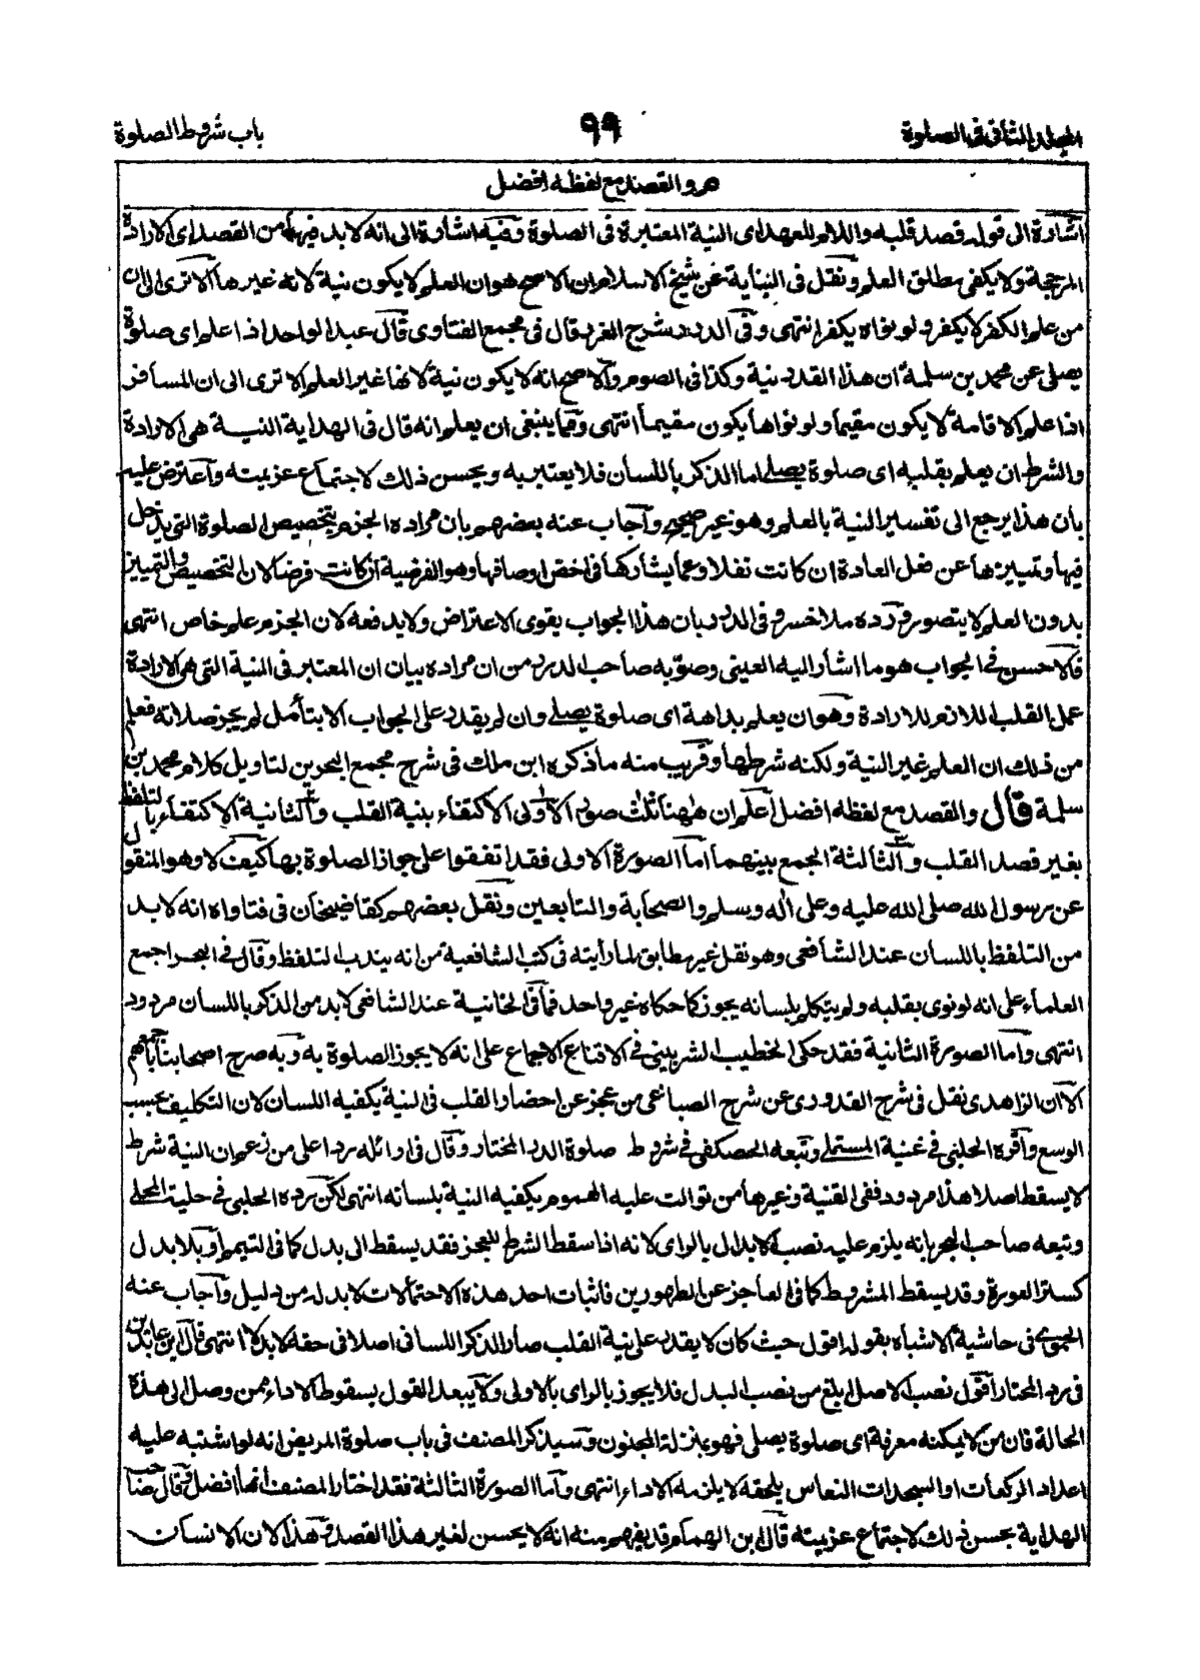 المجلد الثانى فى الصلوة
٩٩
باب شروط الصلوة
هر والقصد مع لفظه افضل
اشارة الى قوله قصد قلبه واللام للعهد اى النية المعتبرة فى الصلوة وفيه اشارة الى انه لا بد فيها من القصد اى الارادة
المرجحة ولا يكفى مطلق العلم ونقل فى البناية عن شيخ الاسلام ان الاصح هو ان العلم لا يكون نية لانه غيرها الا ترى الى ان
من علم الكفر لا يكفر ولو نواه يكفر انتهى وفى الدرر شرح الغرر قال فى مجمع الفتاوى قال عبد الواحد اذا علم اى صلوة
يصلى عن محمد بن سلمة ان هذا القدر نية وكذا فى الصوم والاصح انه لا يكون نية لانها غير العلم الا ترى الى ان المسافر
اذا علم الاقامة لا يكون مقيما ولو نواها يكون مقيما انتهى ومما ينبغى ان يعلم انه قال فى الهداية النية هى الارادة
والشرط ان يعلم بقلبه اى صلوة يصلى اما الذكر باللسان فلا يعتبر به ويحسن ذلك لاجتماع عزيمته واعترض عليه
بان هذا يرجع الى تفسير النية بالعلم وهو غير صحيح واجاب عنه بعضهم بان مراده الجزم بتخصيص الصلوة التى يدخل
فيها وتمييزها عن فعل العادة ان كانت نفلا وعما يشاركها فى اخص اوصافها وهو الفرضية ان كانت فرضا لان التخصيص والتمييز
بدون العلم لا يتصور ورده ملا خسرو فى الدرر بان هذا الجواب يقوى الاعتراض ولا يدفعه لان الجزم علم خاص انتهى
فالاحسن فى الجواب هو ما اشار اليه العينى وصوبه صاحب الدرر من ان مراده بيان ان المعتبر فى النية التى هى الارادة
عمل القلب اللازم للارادة وهو ان يعلم بداهة اى صلوة يصلى وان لم يقدر على الجواب الا بتأمل لم يجز صلاته فعلم
من ذلك ان العلم غير النية ولكنه شرطها وقريب منه ما ذكره ابن ملك فى شرح مجمع البحرين لتاويل كلام محمد بن
سلمة قال والقصد مع لفظه افضل اعلم ان ههنا ثلث صور الاولى الاكتفاء بنية القلب والثانية الاكتفاء بالتلفظ
بغير قصد القلب والثالثة الجمع بينهما اما الصورة الاولى فقد اتفقوا على جواز الصلوة بها كيف لا وهو المنقول
عن رسول الله صلى الله عليه وعلى اله وسلم والصحابة والتابعين ونقل بعضهم كقاضيخان فى فتاواه انه لا بد
من التلفظ باللسان عند الشافعى وهو نقل غير مطابق لما رأيته فى كتب الشافعية من انه يندب التلفظ وقال فى البحر اجمع
العلماء على انه لو نوى بقلبه ولم يتكلم بلسانه يجوز كما حكاه غير واحد فما فى الخانية عند الشافعى لا بد من الذكر باللسان مردود
انتهى واما الصورة الثانية فقد حكى الخطيب الشربينى فى الاقناع الاجماع على انه لا يجوز الصلوة به وبه صرح اصحابنا جمعهم
الا ان الزاهدى نقل فى شرح القدورى عن شرح الصباغى من عجز عن احضار القلب فى النية يكفيه اللسان لان التكليف بحسب
الوسع واقره الحلبى فى غنية المستملى وتبعه الحصكفى فى شروط صلوة الدر المختار وقال فى اوائله ردا على من زعم ان النية شرط
لا يسقط اصلا هذا مردود ففى القنية وغيرها من توالت عليه الهموم يكفيه النية بلسانه انتهى لكن رده الحلبى فى حلية المحلى
وتبعه صاحب البحر بانه يلزم عليه نصب الابدال بالراى لانه اذا سقط الشرط للعجز فقد يسقط الى بدل كما فى التيمم او بلا بدل
كستر العورة وقد يسقط المشروط كما فى العاجز عن الطهورين فاثبات احد هذه الاحتمالات لا بد له من دليل واجاب عنه
الحموى فى حاشية الاشباه بقوله اقول حيث كان لا يقدر على نية القلب صار الذكر اللسانى اصلا فى حقه لا بدلا انتهى قال ابن عابدين
فى رد المحتار اقول نصب الاصل ابلغ من نصب البدل فلا يجوز بالراى بالاولى ولا يبعد القول بسقوط الاداء ممن وصل الى هذه
الحالة فان من لا يمكنه معرفة اى صلوة يصلى فهو بمنزلة المجنون وسيذكر المصنف فى باب صلوة المريض انه لو اشتبه عليه
اعداد الركعات او السجدات لنعاس يلحقه لا يلزمه الاداء انتهى واما الصورة الثالثة فقد اختار المصنف انها افضل وقال صاحب
الهداية يحسن ذلك لاجتماع عزيمته قال ابن الهمام وقد يفهم منه انه لا يحسن لغير هذا القصد وهذا لان الانسان